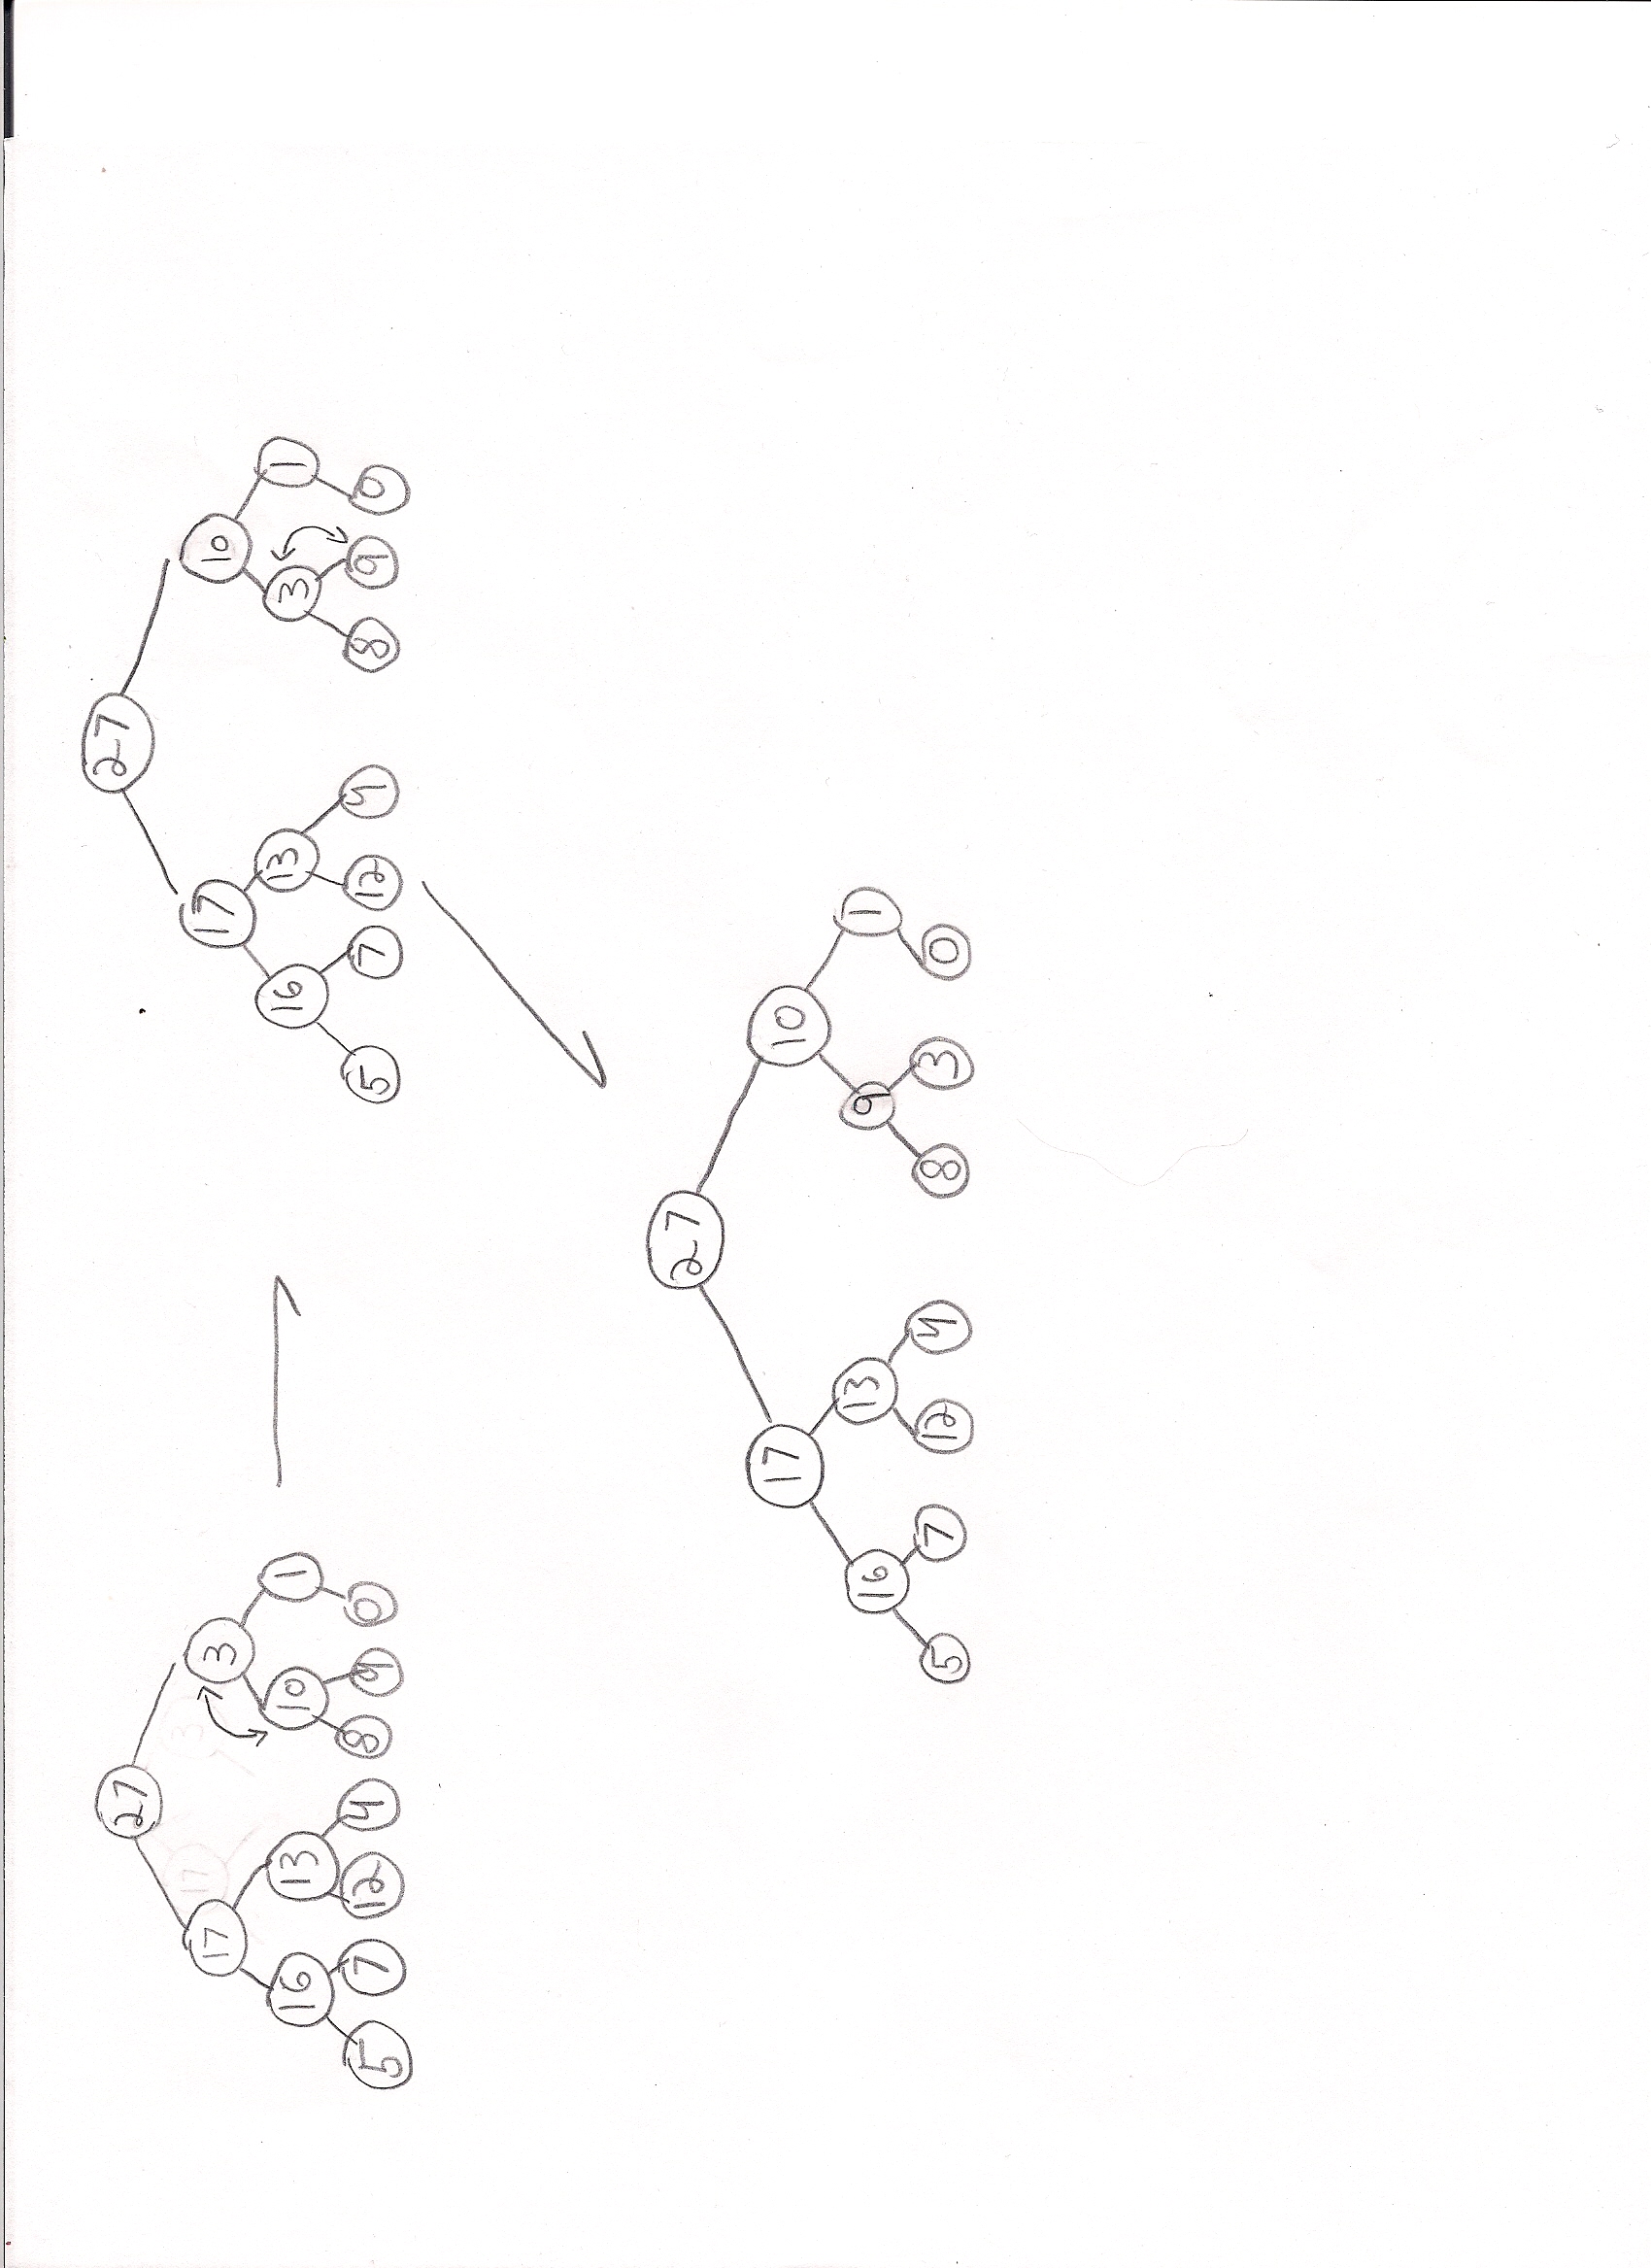 27
17 3
16 13 10 1
5 7 12 4 8 9 0
27
17 10
16 13 3 1
5 7 12 4 8 9 0
27
17 10
16 13 9 1
5 7 12 4 8 3 0